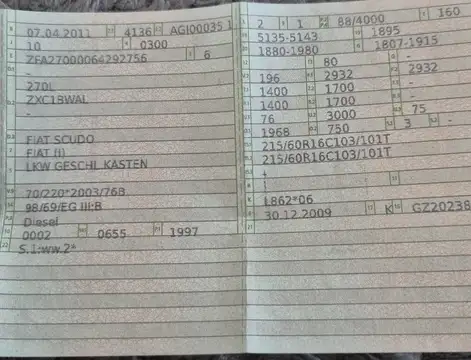 07.04.2011 4136 AGI00035 1
10 0300
ZFA27000064292756 6
-
270L
ZXC1BWAL
-
FIAT SCUDO
FIAT (I)
LKW GESCHL.KASTEN
70/220*2003/76B
98/69/EG III;B
Diesel
0002 0655 1997
S.1:ww.2*
2 1 88/4000 160
5135-5143 1895
1880-1980 1807-1915
80 -
196 2932 2932
1400 1700 -
1400 1700 -
76 3000 75
1968 750 3 -
215/60R16C103/101T
215/60R16C103/101T
L862*06
30.12.2009 K GZ20238